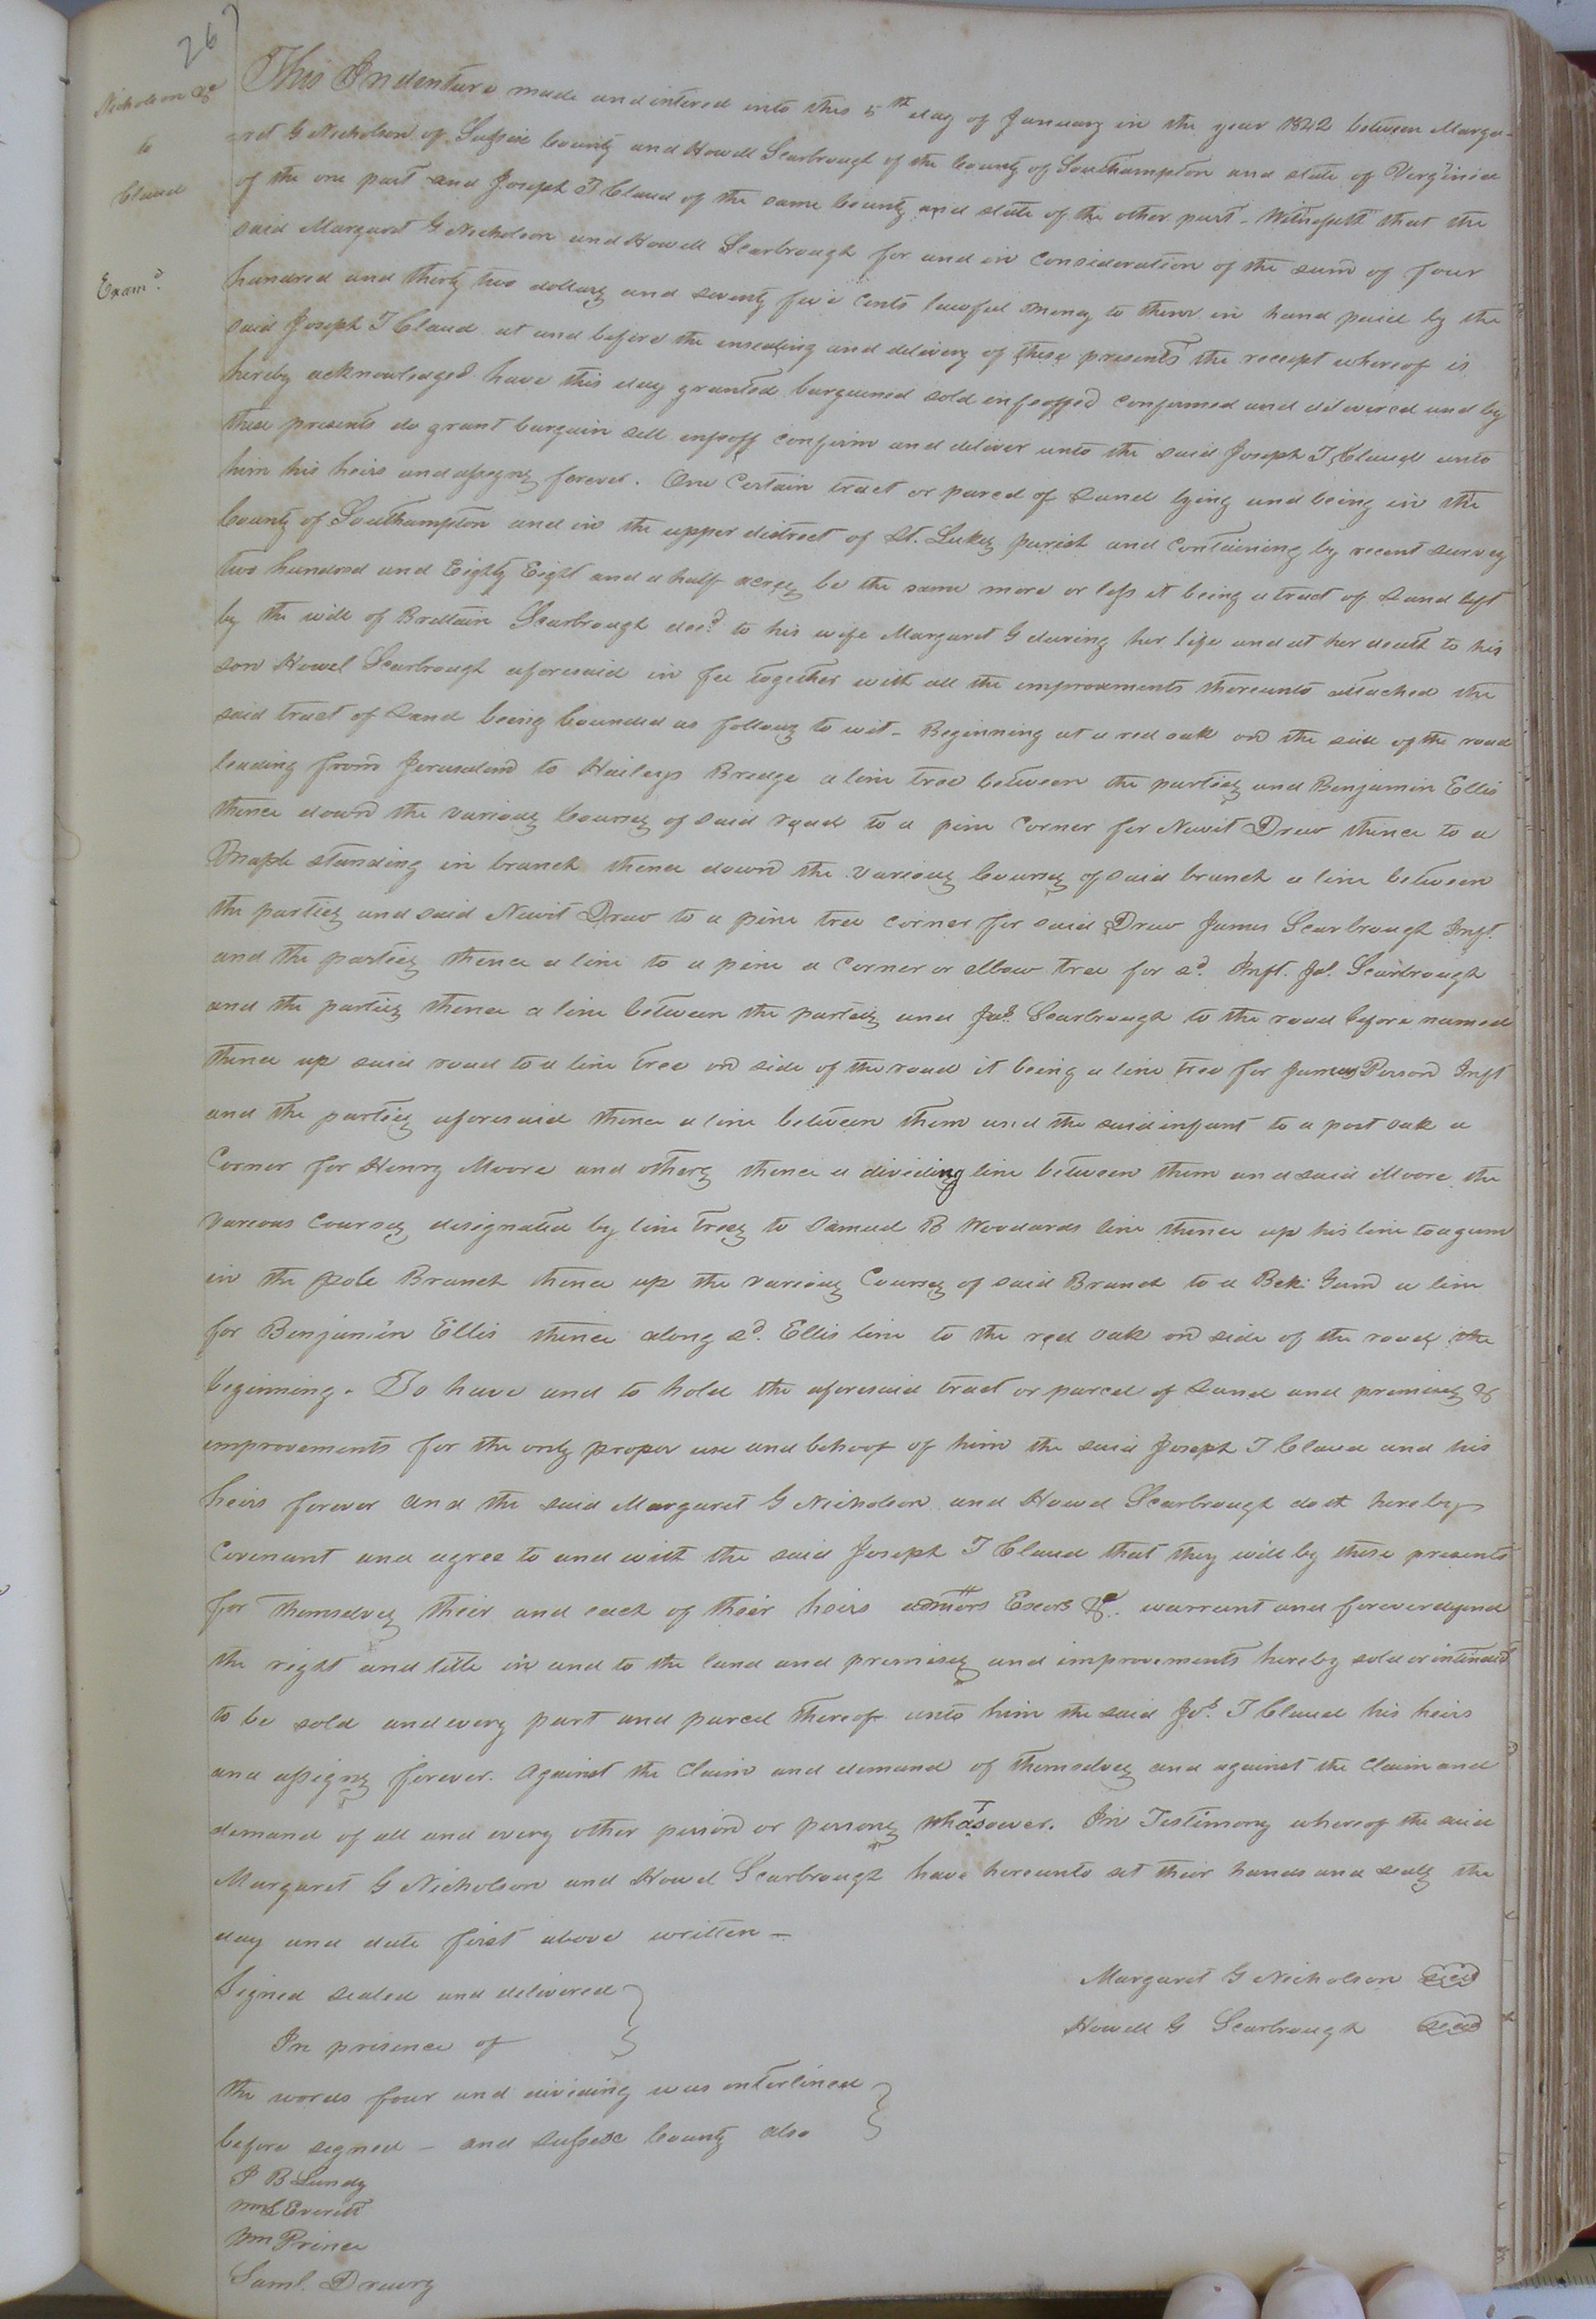 267
Nicholson &c
to
Claud
Exam.d
This Indenture made and intered into this 5th day of January in the year 1842 between Marga-
=ret G Nicholson of Sussex County and Howell Scarbrough of the County of Southampton and state of Verginia
of the one part and Joseph T Claud of the same County and state of the other part - Witnesseth that the
said Margaret G Nicholson and Howell Scarbrough for and in Consideration of the sum of four
hundred and therty two dollars and seventy five cents lawful money to them in hand paid by the
said Joseph T Claud at and before the ensealing and delivery of these presents the receept whereof is
hereby acknowledged have this day granted bargained sold enfeoffed confirmed and delivered and by
these presents do grant bargain sell enfeoff confirm and deliver unto the said Joseph T Claud unto
him his heirs and assigns forever. One Certain tract or parcel of Land lying and being in the
County of Southampton and in the upper district of St. Lukes parish and Containing by recent survey
two hundred and Eighty Eight and a half acres be the same more or less it being a tract of Land left
by the will of Brettain Scarbrough decd. to his wife Margaret G during her life and at her death to his
son Howel Scarbrough aforesaid in fee together with all the improvements thereunto attached the
said tract of Land being bounded as follows to wit - Beginning at a red oak on the side of the road
leading from Jerusalem to Haileys Bredge a line tree between the parties and Benjamin Ellis
thence down the various Courses of said road to a pine Corner for Newit Drew thence to a
Maple standing in branch thence down the various Courses of said branch a line between
the parties and said Newit Drew to a pine tree corner for said Drew James Scarbrough Inft.
and the parties thence a line to a pine a Corner or elbow tree for sd. Inft. Jas. Scarbrough
and the parties thence a line between the parties and Jas. Scarbrough to the road before named
thence up said road to a line tree on side of the road it being a line tree for James Person Inft
and the parties aforesaid thence a line between them and the said infant to a post oak a
Corner for Henry Moore and others thence a dividing line between them and said Moore the
various Courses designated by line trees to Samuel B Woodards line thence up his line to a gum
in the pole Branch thence up the various Courses of said Branch to a Gum a line
for Benjamin Ellis thence along sd. Ellis line to the red oak on side of the road the
beginning. To have and to hold the aforesaid tract or parcel of Land and premises &
improvements for the only proper use and behoof of him the said Joseph T Claud and his
heirs forever and the said Margaret G Nicholson and Howel Scarbrough doth hereby
Covenant and agree to and with the said Joseph T Claud that they will by these presents
for themselves their and each of their heirs admors Exors &c. warrant and forever defend
the right and title in and to the land and premises and improvements hereby sold or intended
to be sold and every part and parcel thereof unto him the said Jos. T Claud his heirs
and assigns forever. Against the Claim and demand of themselves and against the Claim and
demand of all and every other person or persons whatsoever. In Testimony whereof the said
Margaret G Nicholson and Howel Scarbrough have hereunto set their hands and seals the
day and date first above written -
Signed sealed and delivered
In presence of
Margaret G Nicholson seal
Howell G Scarbrough seal
the words four and dividing was enterlined
before segned - and Sussex County also
P B Lundy
Wm L Everitt
Wm Prince
Saml. Drewry